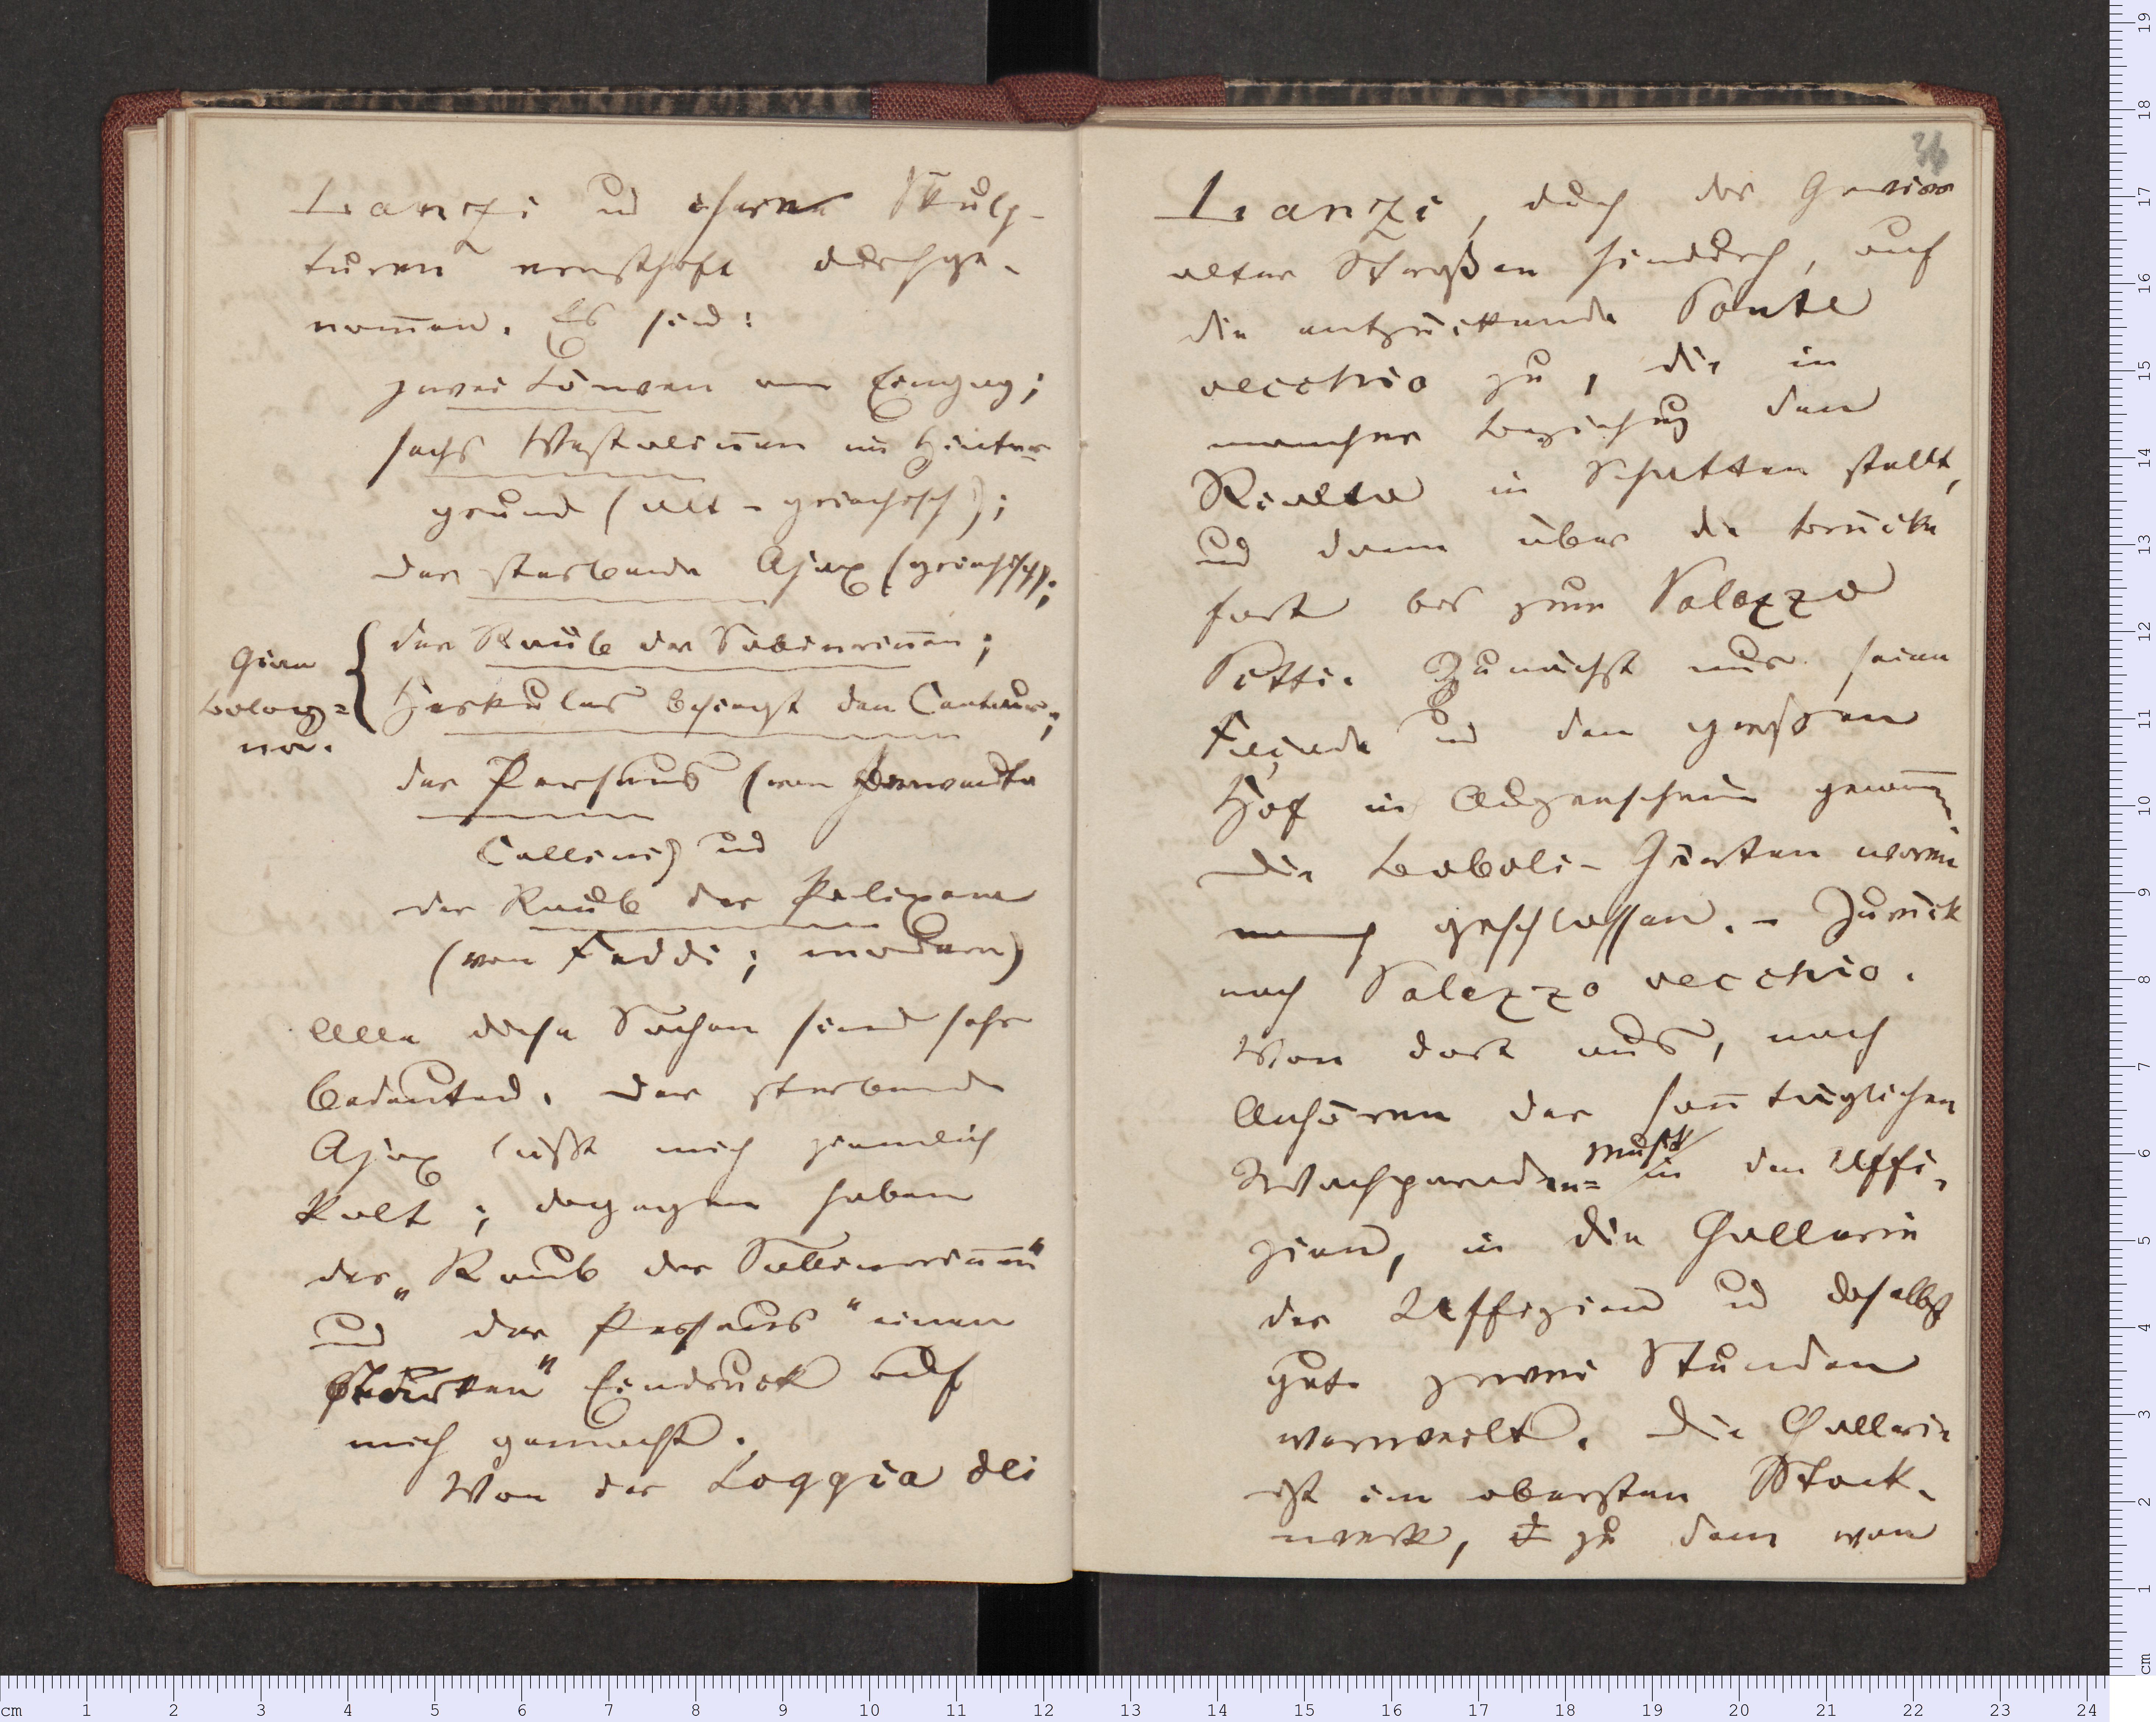 Lanzi und ihre Skulp-
turen ernsthaft durchge-
nom̄en. Es sind:
zwei Löwen am Eingang;
sechs Vestalin̄en im Hinter-
grund (alt-griechisch);
der sterbende Ajax (griechisch);
Gian
Bolog=
na.
der Raub der Sabinerin̄en;
Herkules besiegt den Centaur;
der Perseus (von Benvenuto
Cellini) und
der Raub der Polixena
(von Feddi; modern)
Alle diese Sachen sind sehr
bedeutend. Der sterbende
Ajax läßt mich ziemlich
kalt; dagegen haben
der „Raub der Sabinerin̄en“
und der „Perseus“ einen
starken Eindruck auf
mich gemacht.
Von der Loggia dei
36
Lanzi, durch das Gewirr
alter Straßen hindurch, auf
die entzückende Ponte
vecchio zu, die in
mancher Beziehung den
Rialto in Schatten stellt,
und dann über die Brücke
fort bis zum Palazzo
Pitti. Zunächst nur seine
Façade und den großen
Hof in Augenschein genom̄en,
Die Boboli-Gärten waren
noch geschlossen. – Zurück
nach Palazzo vecchio.
Von dort aus, nach
Anhören der son̄täglichen
Wachparaden=Musik in den Uffi-
zien, in die Gallerie
der Uffizien und daselbst
gute zwei Stunden
verweilt. Die Gallerie
ist im obersten Stock-
werk, d zu dem man